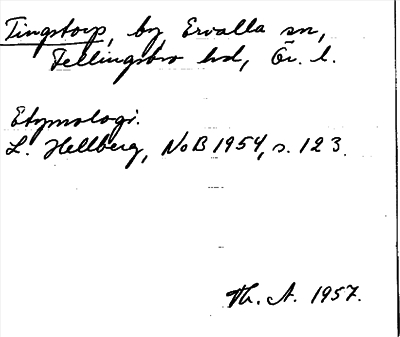 Tingstorp, by, Ervalla sn,
Fellingsbro hd, Ör. l.
Etymologi.
L. Hellberg, NoB 1954, s. 123.
Th. A. 1957.